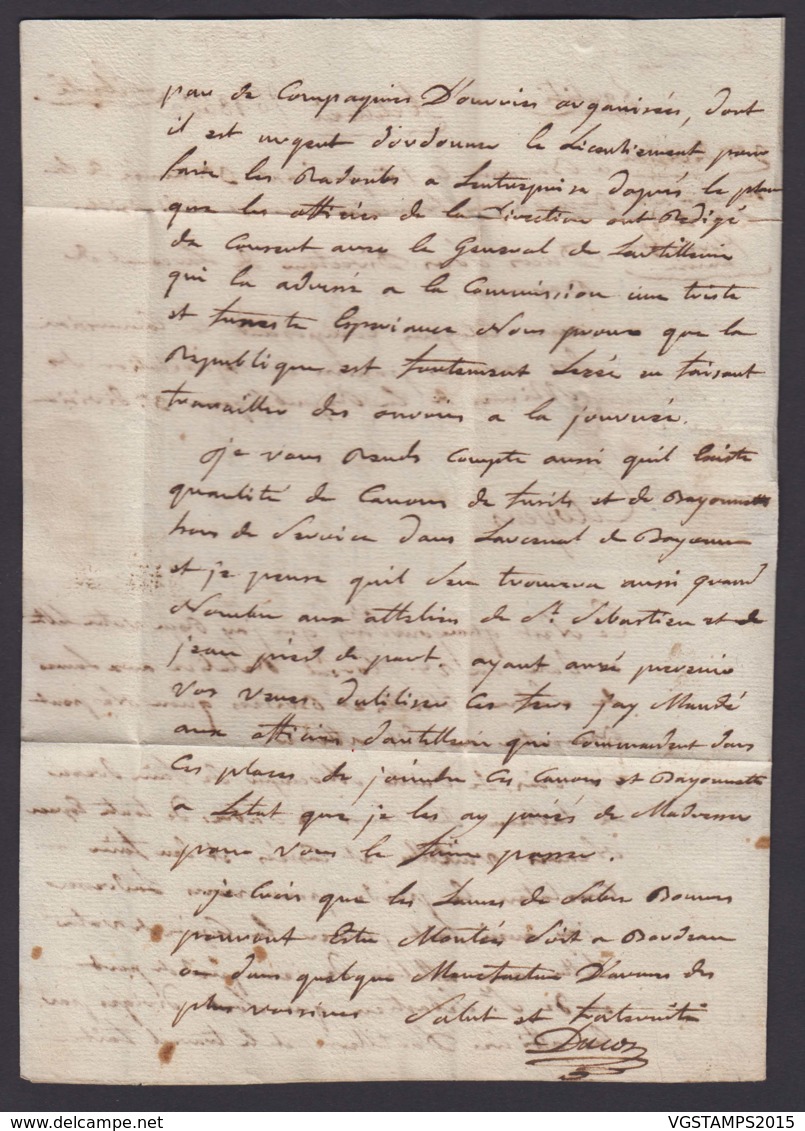 par de Compagnies D'ouvriers organisées, dont
il est urgent d'ordonner le Licentiement pour
faire les Radoubs a Lentreprise dapres le plan
que les officiers de la Direction ont Redigé
de Concert avec le General de Lartillerie
qui la adressé a la Commission une triste
et funeste Experience Nous prouve que la
Republique est fortement Lezée en faisant
travailler des ouvriers a la journée.
Je vous Rends Compte aussi quil Existe
quantité de Canons de fusils et de Bayonnettes
hors de Service dans Larcenal de Bayonne
et je pense quil Sen trouvera aussi grand
Nombre aux atteliers de St. Sebastien et de
jean pied de port. ayant
vos vues dutiliser ces fers jay Mandé
aux officiers dartillerie qui Commandent dans
Ces places de joindre Ces Canons et Bayonnettes
a Letat que je les ay priés de Madresser
pour vous le faire passer.
je Crois que les Lames de Sabre Bonnes
pouvont Estre Montées Soit a Bordeau
ou dans quelque Manufacture D'armes des
plus voisines Salut et fraternité
Ducos
VGSTAMPS2015